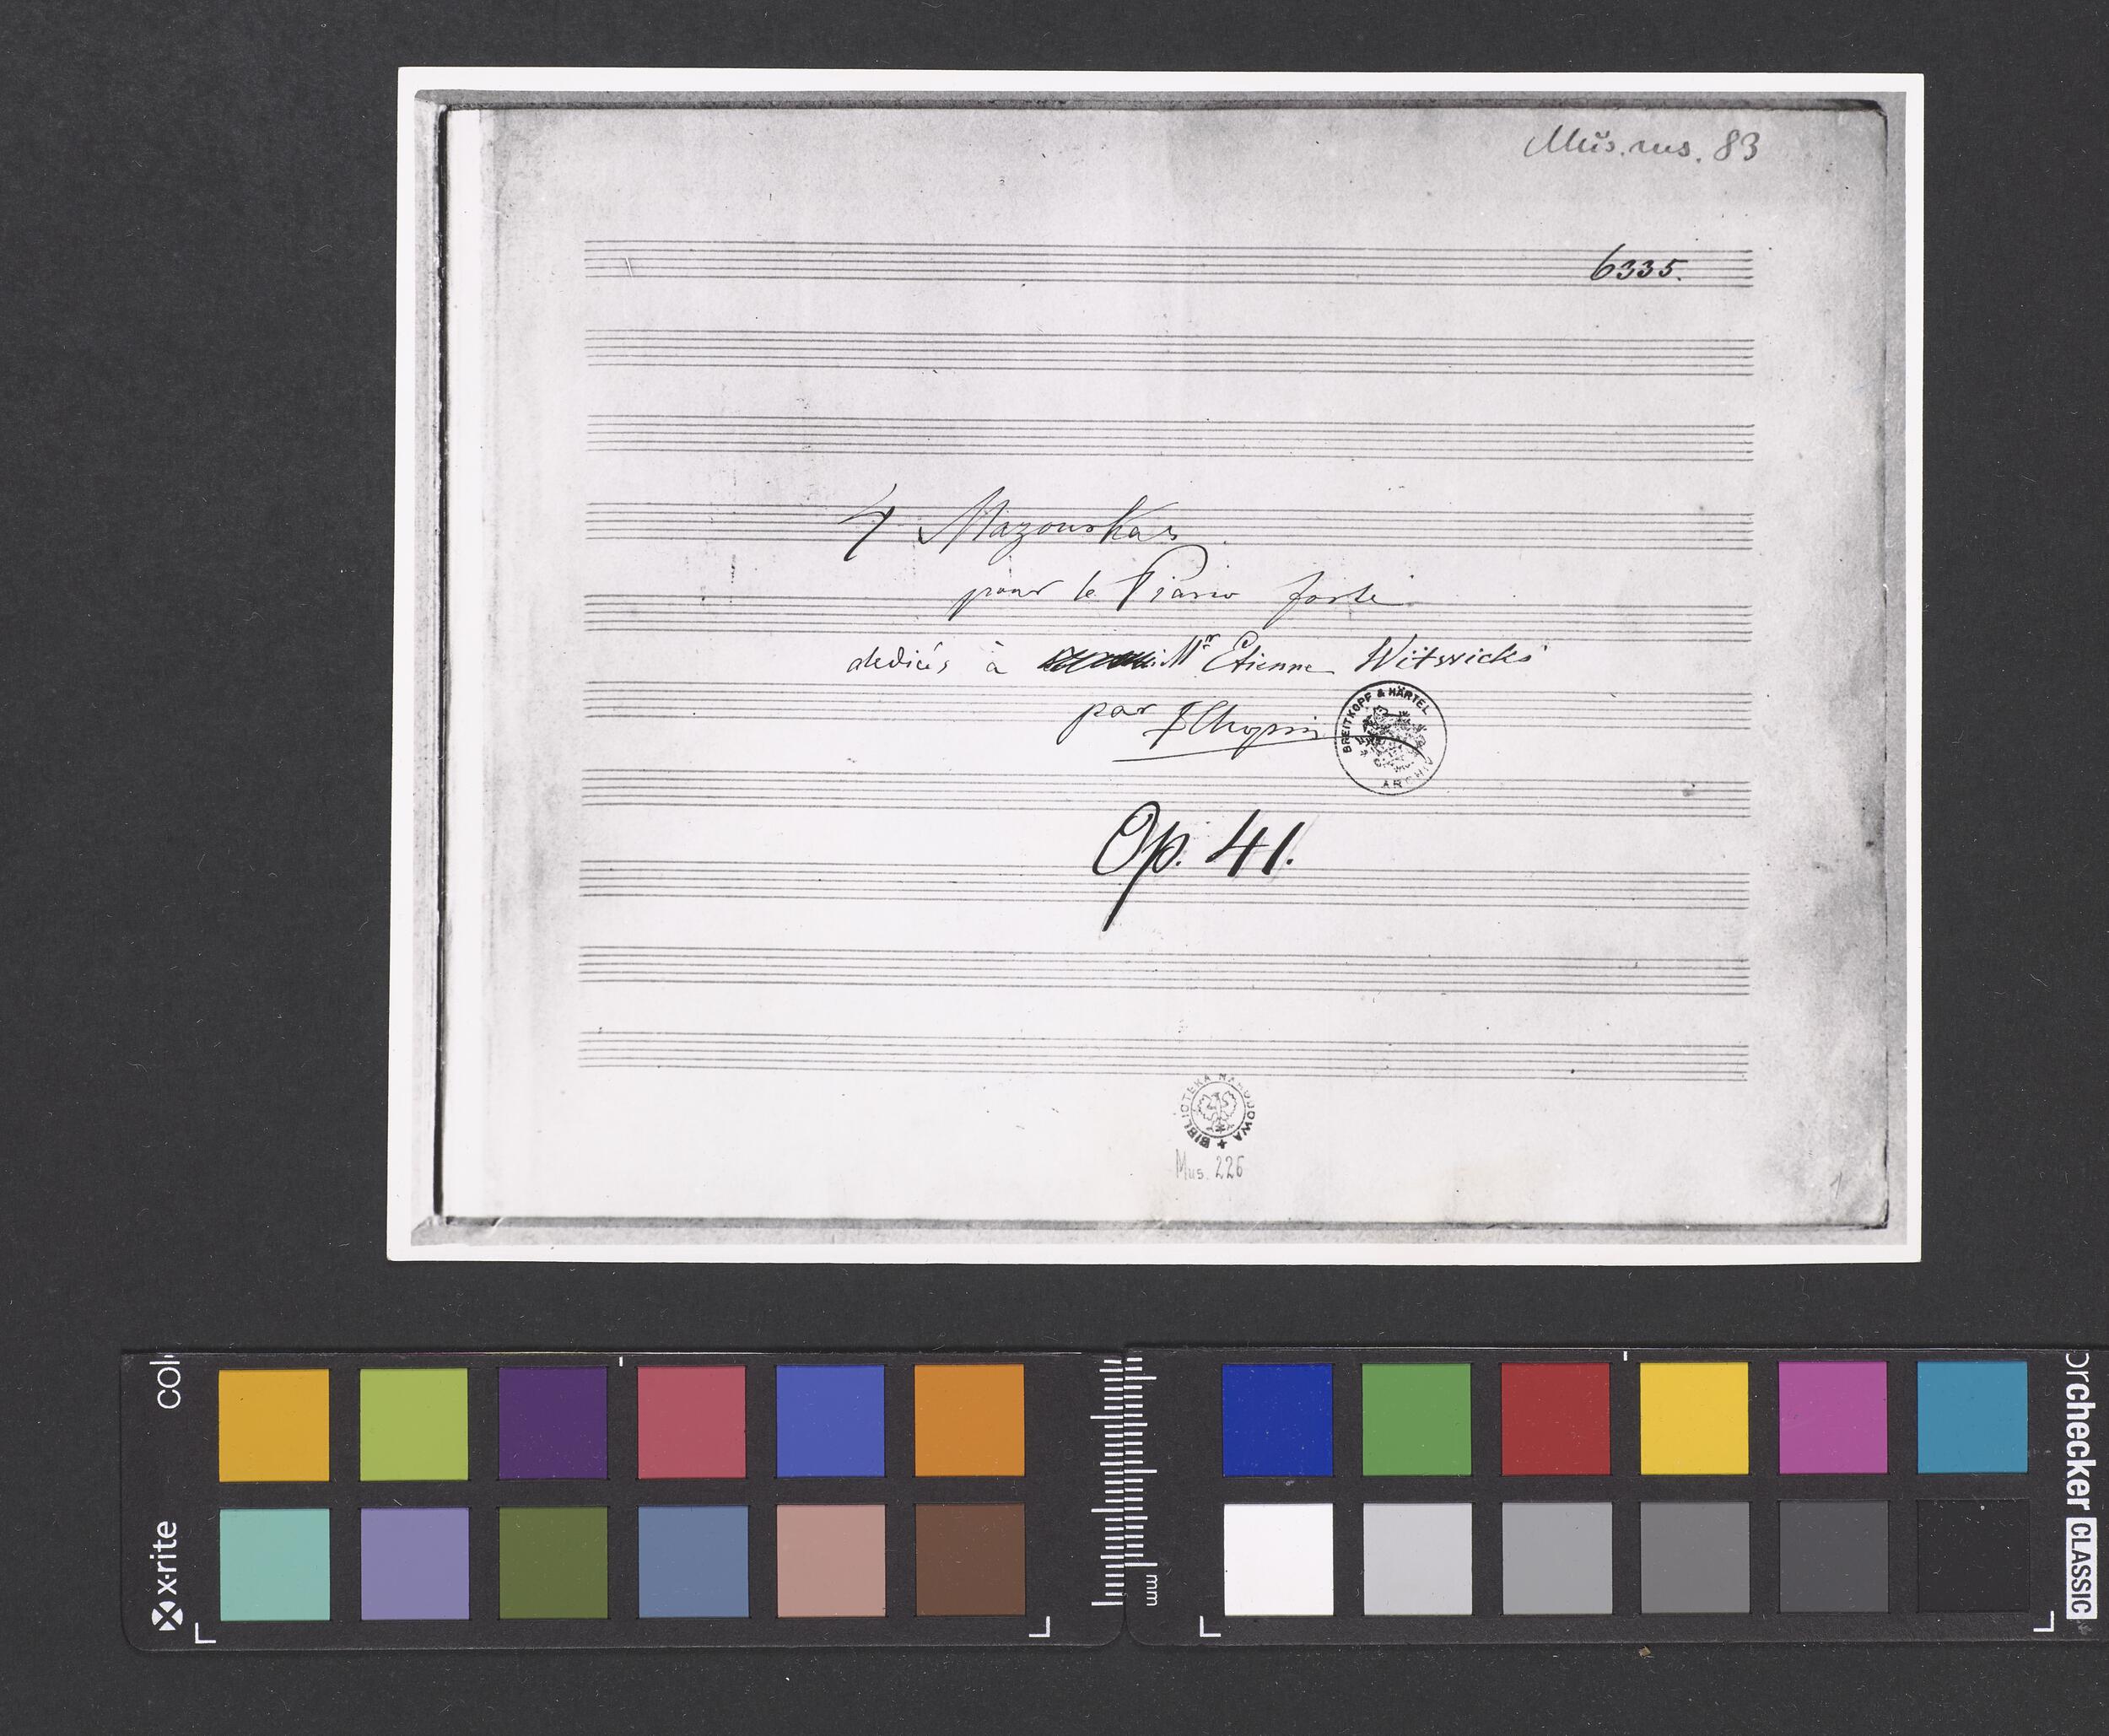 Mus. ms. 83
6335.
4 Mazourkas
pour le Piano forte
dediés à Mr Etienne Witwicki
par FChopin
BREITKOPF & HÄRTEL
ARCHIV
Op. 41.
BIBLIOTEKA NARODOWA
Mus. 226
1
x-rite
col
mm
orchecker CLASSIC